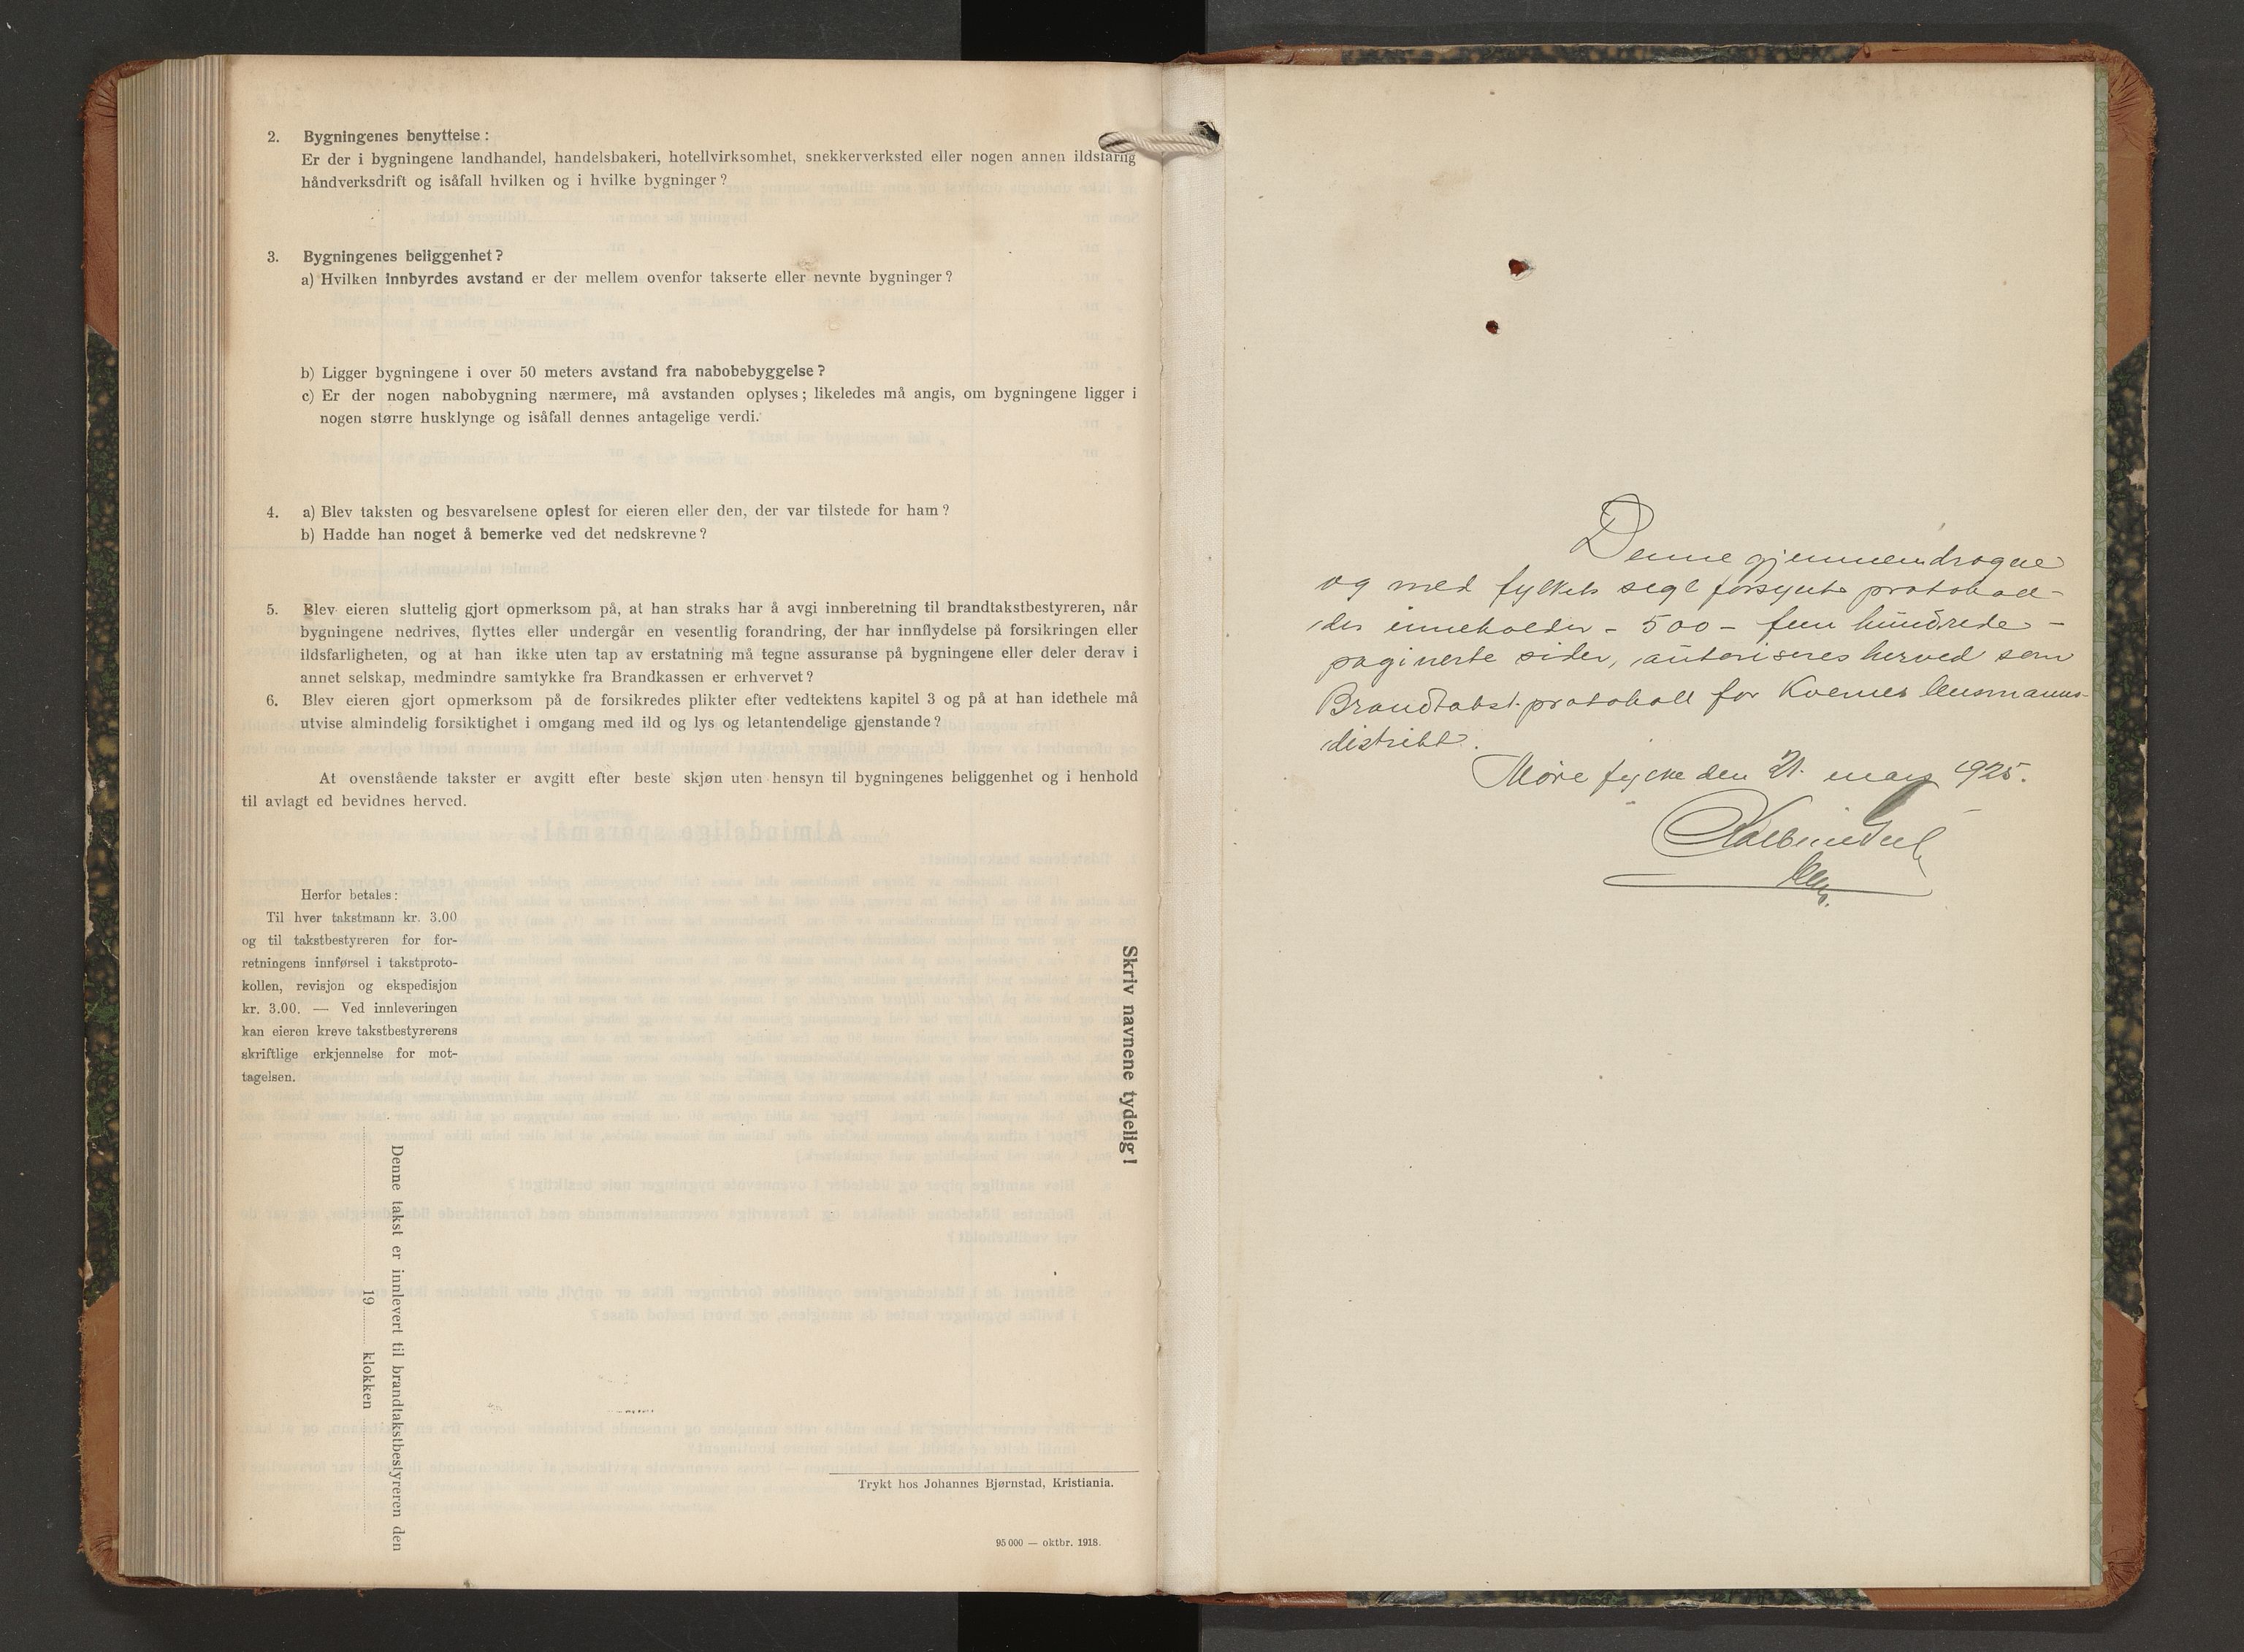 2. Bygningenes benyttelse:
Er der i bygningene landhandel, handelsbakeri, hotellvirksomhet, snekkerverksted eller nogen annen ildsfarlig
håndverksdrift og isåfall hvilken og i hvilke bygninger?
3. Bygningenes beliggenhet?
a) Hvilken innbyrdes avstand er der mellem ovenfor takserte eller nevnte bygninger?
b) Ligger bygningene i over 50 meters avstand fra nabobebyggelse?
c) Er der nogen nabobygning nærmere, må avstanden oplyses; likeledes må angis, om bygningene ligger i
nogen større husklynge og isåfall dennes antagelige verdi.
4. a) Blev taksten og besvarelsene oplest for eieren eller den, der var tilstede for ham?
b) Hadde han noget å bemerke ved det nedskrevne?
5. Blev eieren sluttelig gjort opmerksom på, at han straks har å avgi innberetning til brandtakstbestyreren, når
bygningene nedrives, flyttes eller undergår en vesentlig forandring, der har innflydelse på forsikringen eller
ildsfarligheten, og at han ikke uten tap av erstatning må tegne assuranse på bygningene eller deler derav i
annet selskap, medmindre samtykke fra Brandkassen er erhvervet?
6. Blev eieren gjort opmerksom på de forsikredes plikter efter vedtektens kapitel 3 og på at han idethele må
utvise almindelig forsiktighet i omgang med ild og lys og letantendelige gjenstande?
At ovenstående takster er avgitt efter beste skjøn uten hensyn til bygningenes beliggenhet og i henhold
til avlagt ed bevidnes herved.
Herfor betales:
Til hver takstmann kr. 3.00
og til takstbestyreren for for-
retningens innførsel i takstproto-
kollen, revisjon og ekspedisjon
kr. 3.00. — Ved innleveringen
kan eieren kreve takstbestyrerens
skriftlige erkjennelse for mot-
tagelsen.
Skriv navnene tydelig!
Denne takst er innlevert til brandtakstbestyreren den
19 klokken
Trykt hos Johannes Bjørnstad, Kristiania.
95 000 — oktbr. 1918.
Denne gjennemdragne
og med fylkets segl forsynte protokoll-
der inneholder - 500 - fem hundrede -
paginerte sider, autoriseres herved som
Brandtakst-protokoll for Kvernes lensmanns-
distrikt.
Møre fylke den 21. mars 1925.